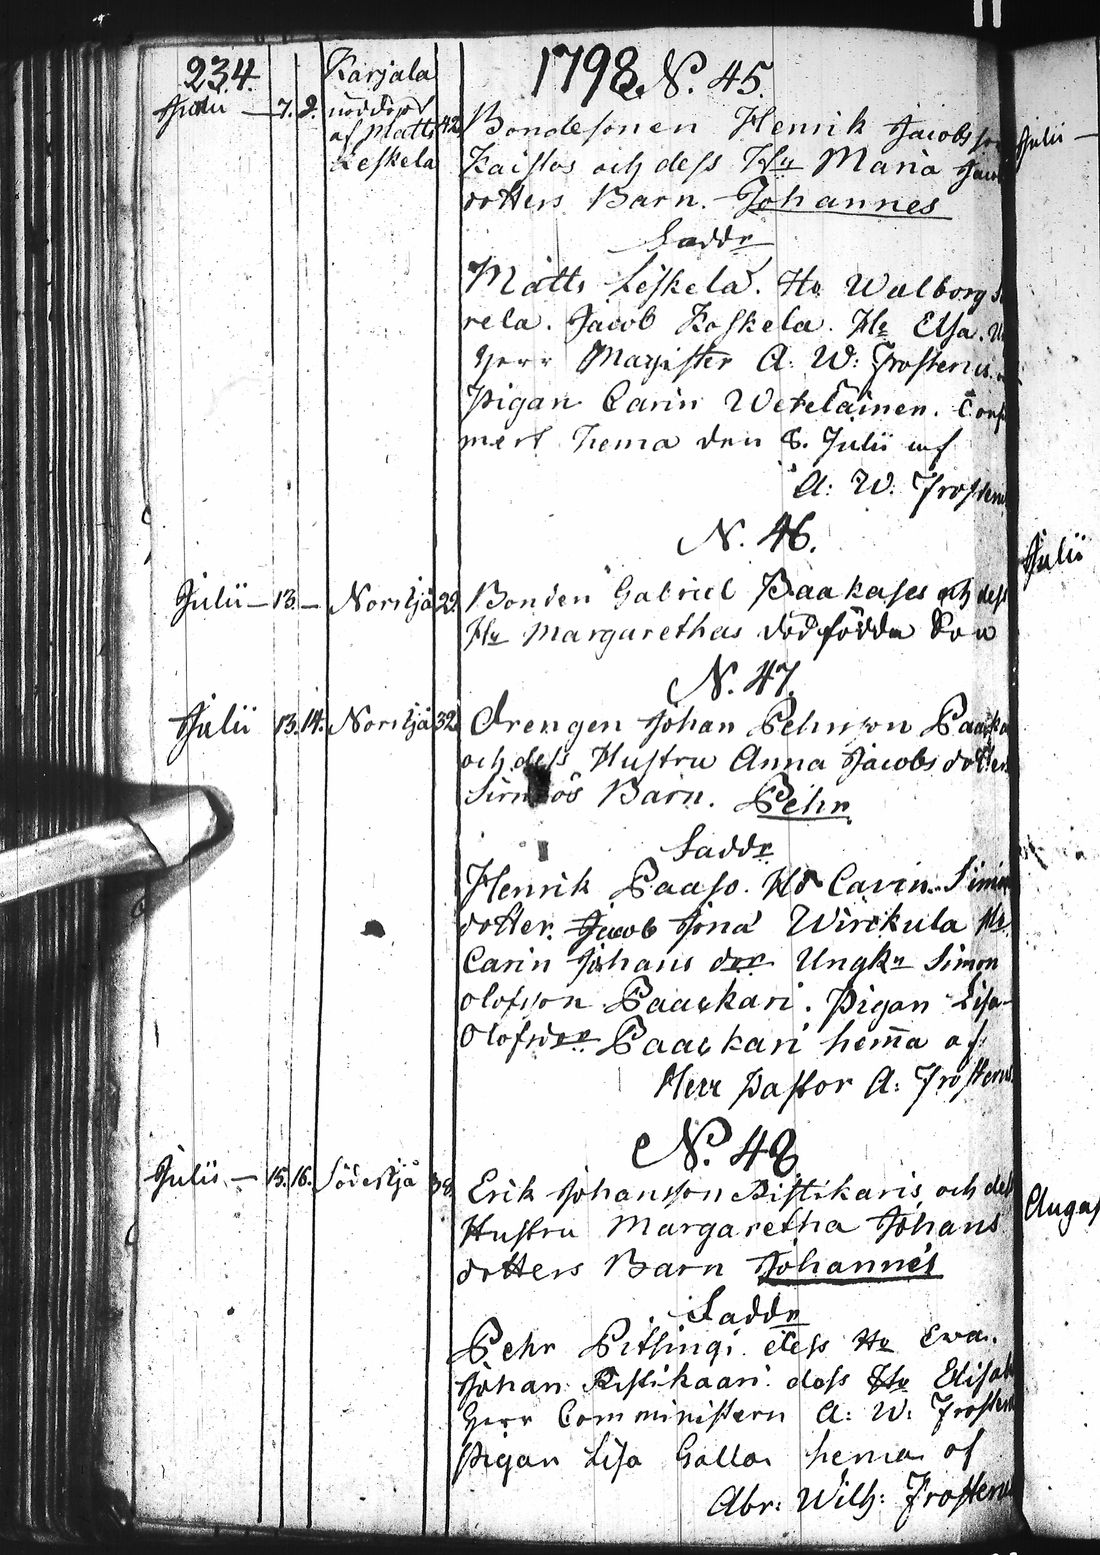 234. Karjala 1798. N. 45.
Julii — 7. 8. nöddop af Matts Keskela 42
Bondesonen Henrik Jacobsson
Kaistos och dess Hu Maria
dotters Barn. Johannes
Faddr
Matts Leskela. Hu Walborg
rela. Jacob Koskela. Hu Elsa.
Herr Magister A: W: Frosterus.
Pigan Carin Wetelainen. Conf
mert hema den 8. Julii af
A: W: Frosterus
N. 46.
Julii — 13. — Norsjö 29. Bonden Gabriel Paakases och dess
Hu Margarethas dödfödda Son
N. 47.
Julii 13. 14. Norsjö 32. Drengen Johan Pehrson
och dess Hustru Anna Jacobsdotter
Barn. Pehr
Faddr
Henrik Paaso. Hu Carin Simons
dotter. Jacob Wirkula Hu
Carin Johans der Ungkn Simon
Olofsson Paaskari. Pigan Lisa
Olofsder Paaskari hema af
Herr Pastor A: Frosterus
N. 48
Julii — 15. 16. Södesjö 38. Erik Johansson Ristikaris och dess
Hustru Margaretha Johans
dotters Barn Johannes
Faddr
Pehr Pitsingi dess Hu Ewa.
Johan Ristikaari dess Hu Elisab
Herr Comministern A: W: Frosterus
Pigan Lisa Galla hema af
Abr: Wilh: Frosterus
Julii —
Julii
August